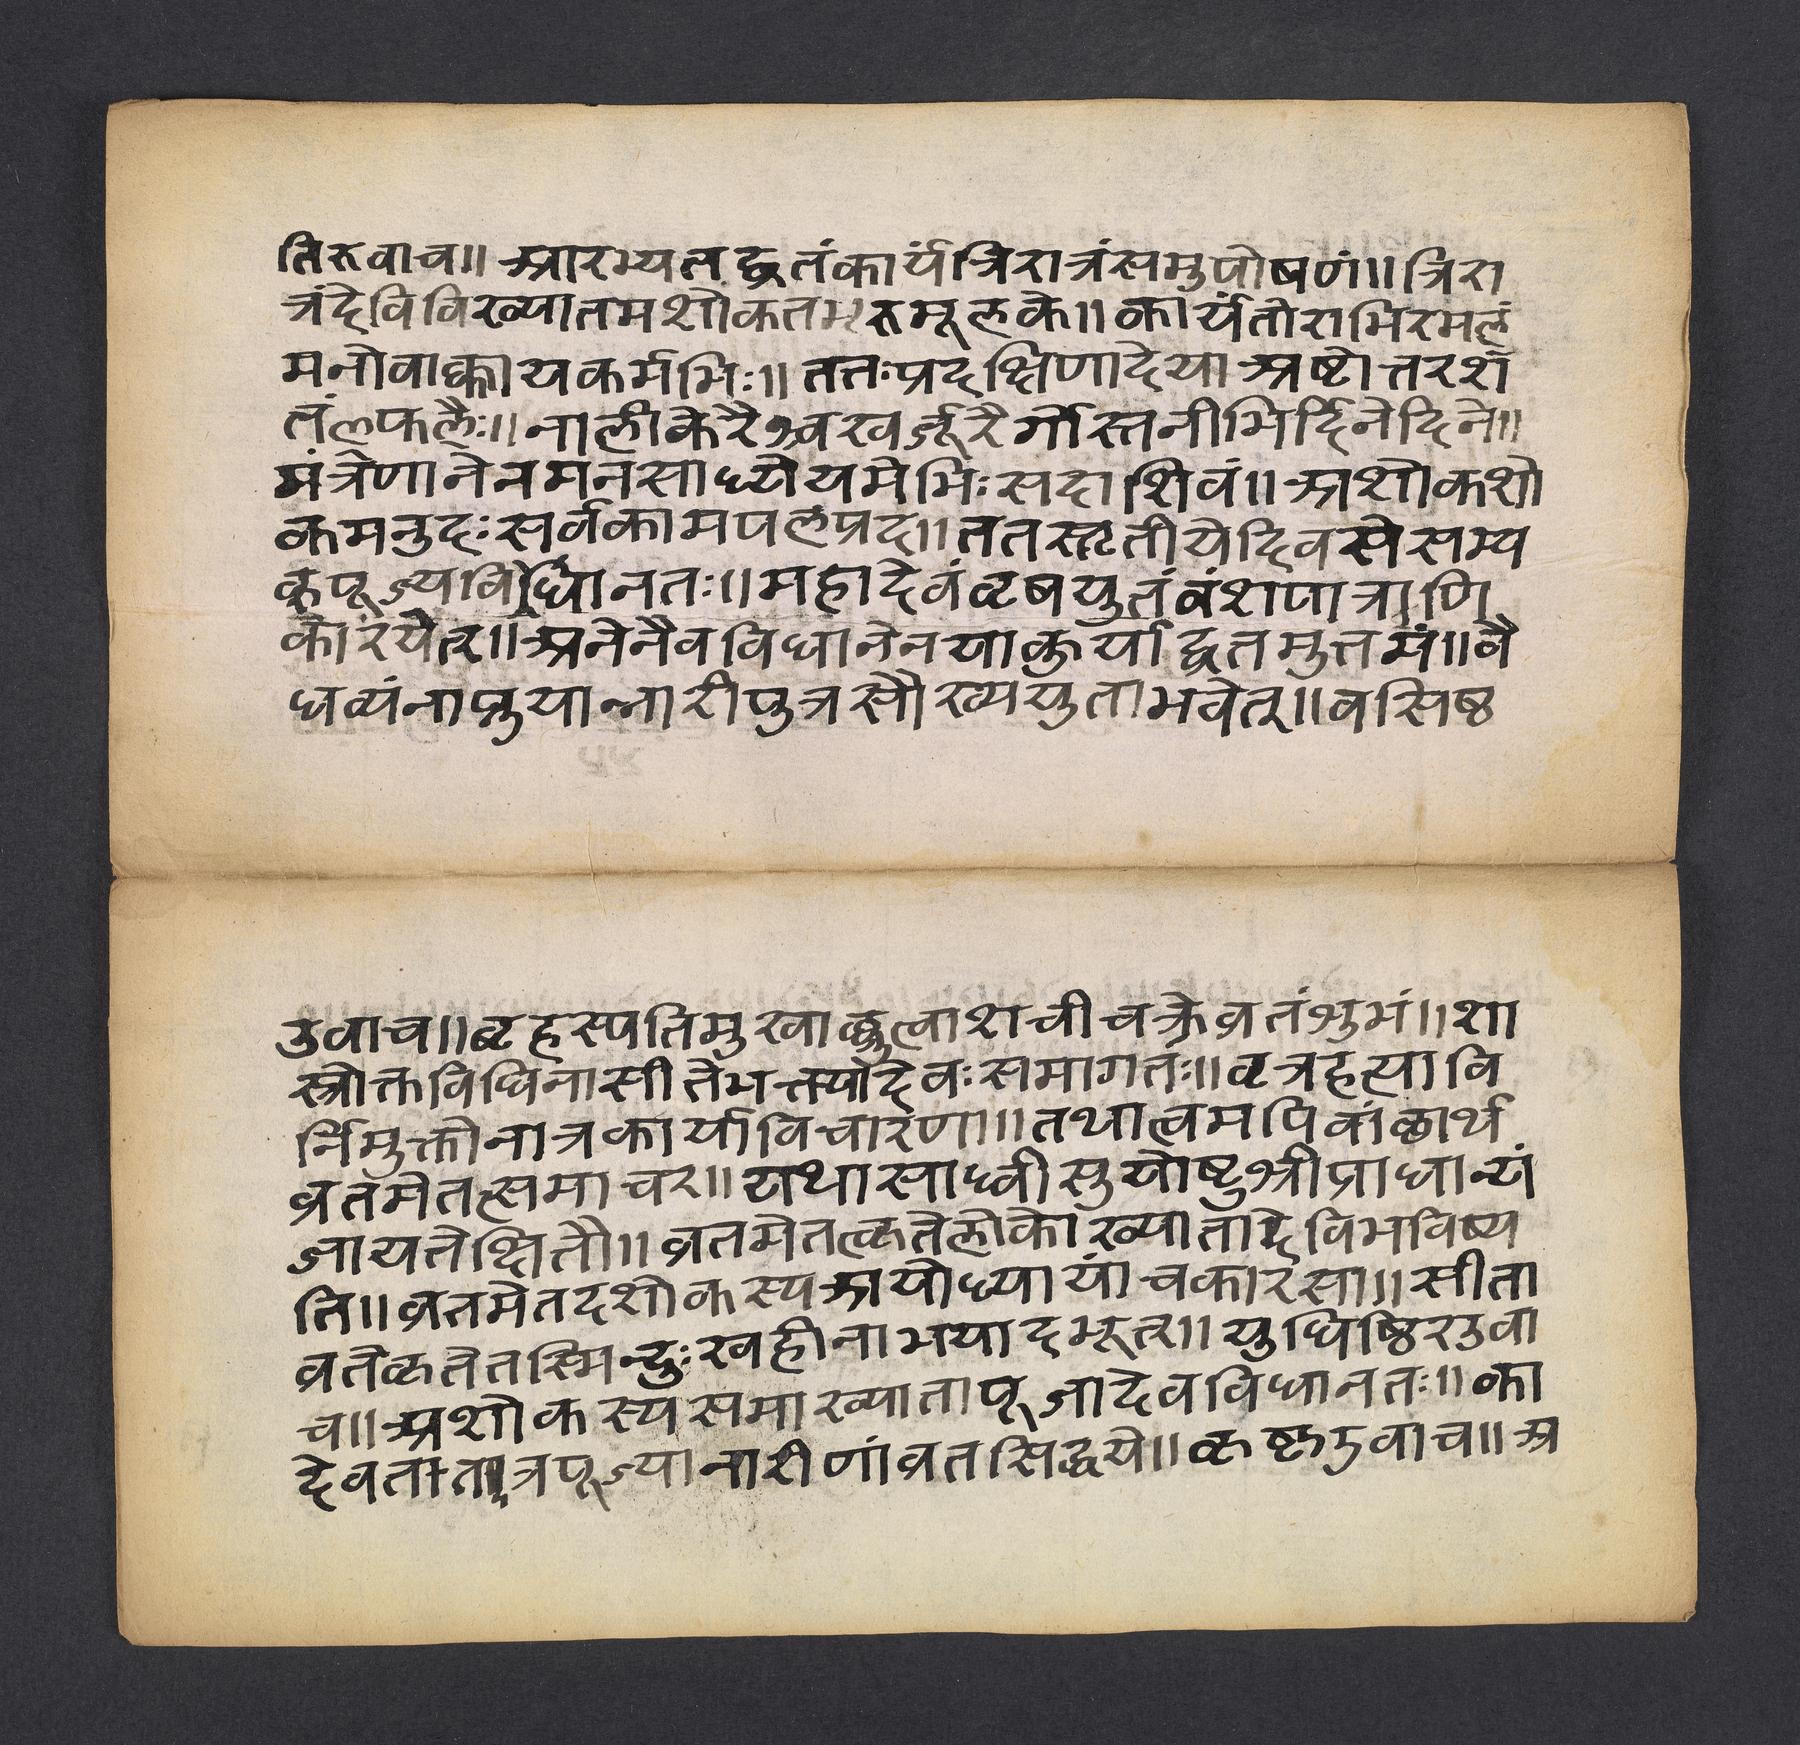 तिरुवाच॥ आरभ्यतद्व्रतंकार्यंत्रिरात्रंसमुपोषणं॥ त्रिरा
त्रंदेविविख्यातमशोकतमरुमूलके॥ कार्यंतोराभिरमलं
मनोवाक्कायकर्मभिः॥ ततःप्रदक्षिणादेयाअष्टोत्तरश
तंलफलैः॥ नालीकेरैश्चखर्जूरैर्गोस्तनीभिर्दिनेदिने॥
मंत्रेणानेनमनसाध्येयमेभिःसदाशिवं॥ अशोकशो
कमनुदःसर्वकामपलप्रद॥ ततस्तृतीयेदिवसेसम्य
क्पूज्यविर्धिानतः॥ महादेवंवृषयुतंवंशपात्राणि
कारयेत्॥ अनेनैवविधानेनयाकुर्याद्व्रतमुत्तमं॥ वै
धव्यंनाप्नुयान्नारीपुत्रसौख्ययुताभवेत्॥ वसिष्ठ
उवाच॥ बृहस्पतिमुखाच्छ्रुत्वाशचीचक्रेव्रतंशुभं॥ शा
स्त्रोक्तविधिनासीतेभक्त्यादेवःसमागतः॥ वृत्रहत्यावि
र्निमुक्तोनात्रकार्याविचारणा॥ तथात्वमपिवांछार्थ
व्रतमेतत्समाचर॥ यथासाध्वीसुयोष्टुश्रीप्राधान्यं
जायतेक्षितौ॥ व्रतमेतत्कृतेलोकेाख्यातादेविभविष्य
ति॥ व्रतमेतदशोकस्यअयोध्यायांचकारसा॥ सीता
व्रतेकृतेतस्मिन्दुःखहीनाभयादभूत्॥ युधिष्ठिरउवा
च॥ अशोकस्यसमाख्यातापूजादेवविधानतः॥ का
देवतातत्रपूज्यानारीणांव्रतसिद्धये॥ कृष्णउवाच॥ अ